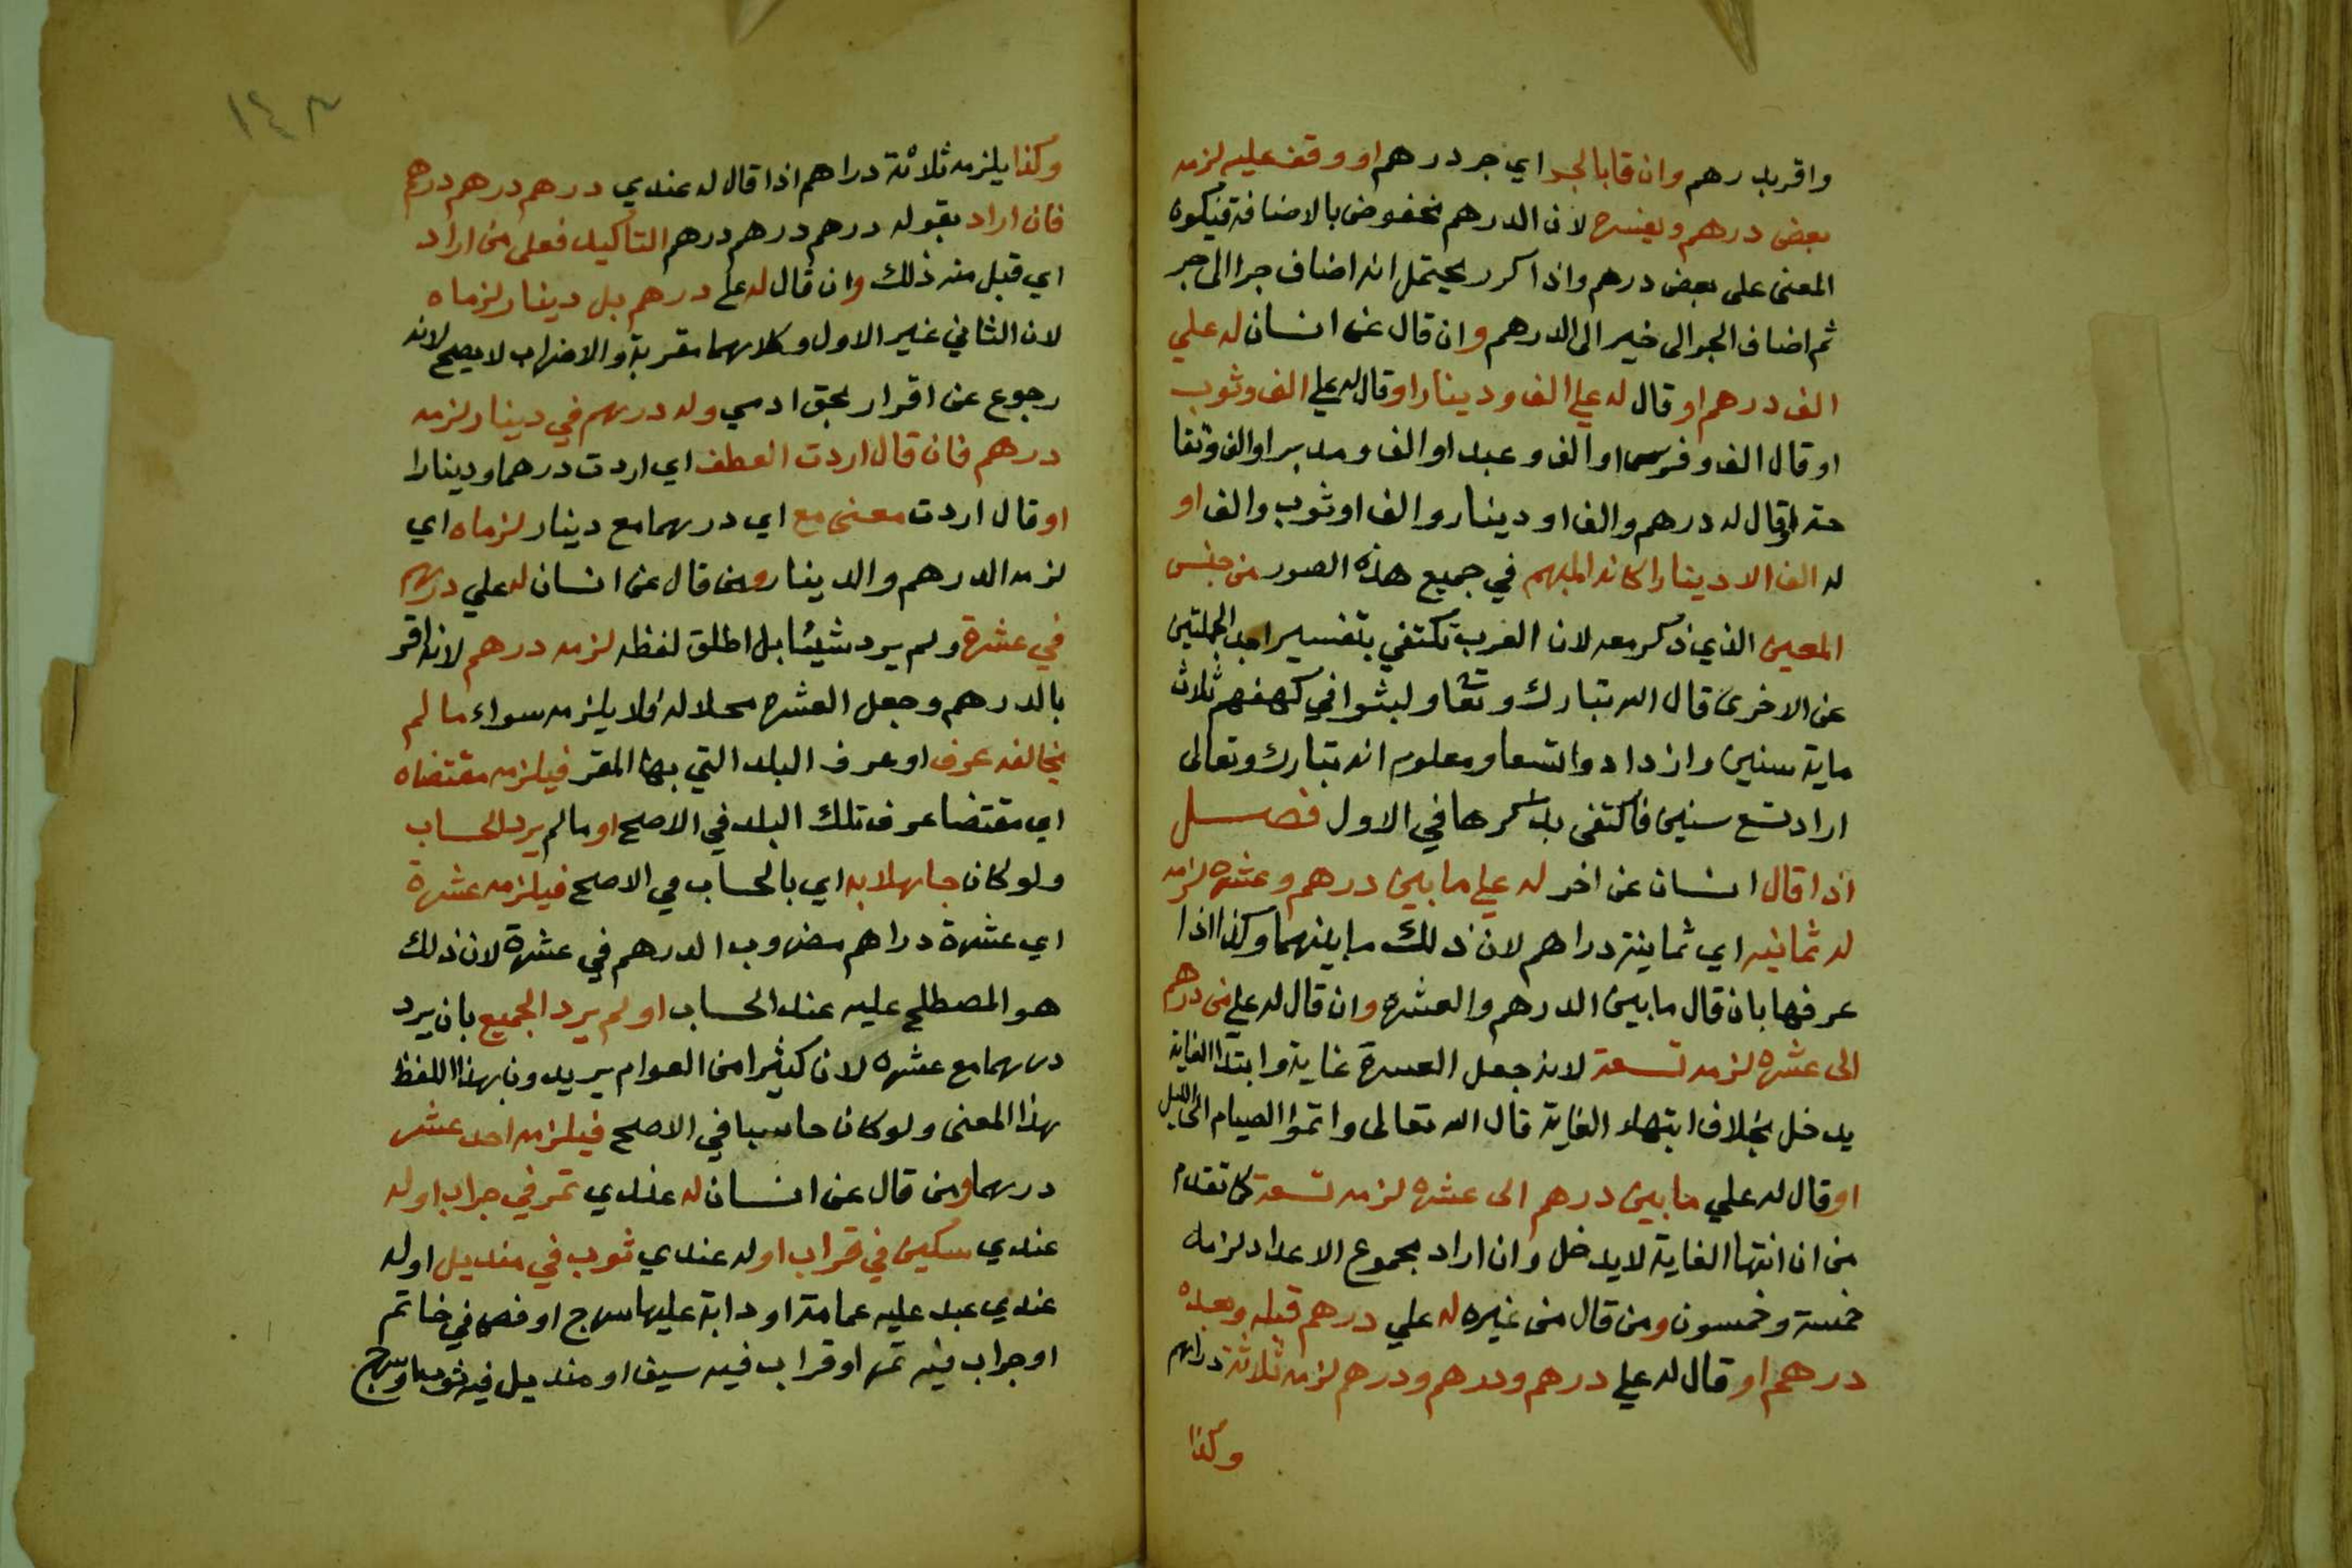 واقر بدرهم وان قا بالجر اي جر درهم او وقف عليه لزمه
بعض درهم ويفسره لان الدرهم مخفوض بالاضافة فيكون
المعنى على بعض درهم واذا كرر يحتمل انه اضاف جزا الى جز
ثم اضاف الجز الى خير الى الدرهم وان قال عن انسان له علي
الف درهم او قال له علي الف ودينار او قال له علي الف وثوب
او قال الف وفرس او الف وعبد او الف ومدبر او الف وتفا
حة او قال له درهم والف او دينار والف او ثوب والف او
له الف الا دينارا كان المبهم في جميع هذه الصور من جنس
المعين الذي ذكر معه لان العرب تكتفي بتفسير احد الجملتين
عن الاخرى قال الله تبارك وتعا ولبثوا في كهفهم ثلاث
ماية سنين وازدادوا تسعا ومعلوم انه تبارك وتعالى
اراد تسع سنين فاكتفى بذكرها في الاول فصل
اذا قال انسان عن اخر له علي ما بين درهم وعشره لزمه
له ثمانيه اي ثمانية دراهم لان ذلك ما بينهما وكذا اذا
عرفها بان قال ما بين الدرهم والعشره وان قال له علي من درهم
الى عشره لزمه تسعة لانه جعل العسرة غاية وابتدا الغاية
يدخل بخلاف انتهاء الغاية قال الله تعالى واتموا الصيام الى الليل
او قال له علي ما بين درهم الى عشره لزمه تسعة كما تقدم
من ان انتها الغاية لا يدخل وان اراد مجموع الاعداد لزمه
خمسة وخمسون ومن قال من غيره له علي درهم قبله وبعده
درهم او قال له علي درهم ودرهم ودرهم لزمه ثلاثة دراهم
وكذا
١٤٣
وكذا يلزمه ثلاثة دراهم اذا قال له عندي درهم درهم درهم
فان اراد بقوله درهم درهم درهم التاكيد فعلى من اراد
اي قبل منه ذلك وان قال له علي درهم بل دينار لزماه
لان الثاني غير الاول وكلاهما مقر به والاضراب لا يصح لانه
رجوع عن اقرار بحق ادمي وله درهم في دينار لزمه
درهم فان قال اردت العطف اي اردت درهما ودينارا
او قال اردت معنى مع اي درهما مع دينار لزماه اي
لزمه الدرهم والدينار ومن قال عن انسان له علي درهم
في عشرة ولم يرد شيئا بل اطلق لفظه لزمه درهم لانه اقر
بالدرهم وجعل العشره محلا له فلا يلزمه سواء ما لم
يخالفه عرف او عرف البلد التي بها المقر فيلزمه مقتضاه
اي مقتضا عرف تلك البلد في الاصح او ما لم يرد الحساب
ولو كان جاهلا به اي بالحساب في الاصح فيلزمه عشرة
اي عشرة دراهم مضروب الدرهم في عشرة لان ذلك
هو المصطلح عليه عند الحساب او لم يرد الجميع بان يرد
درهما مع عشره لان كثيرا من العوام يريدون بهذا اللفظ
بهذا المعنى ولو كان حاسبا في الاصح فيلزمه احد عشر
درهما ومن قال عن انسان له عندي تمر في جراب او له
عندي سكين في قراب او له عندي ثوب في منديل او له
عندي عبد عليه عمامة او دابة عليها سرج او فص في خاتم
او جراب فيه تمر او قراب فيه سيف او منديل فيه ثوب او سرج